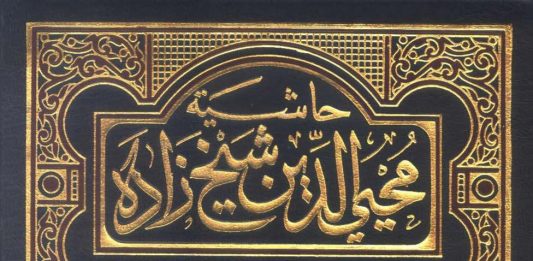 حاشية
محيي الدين شيخ زاده